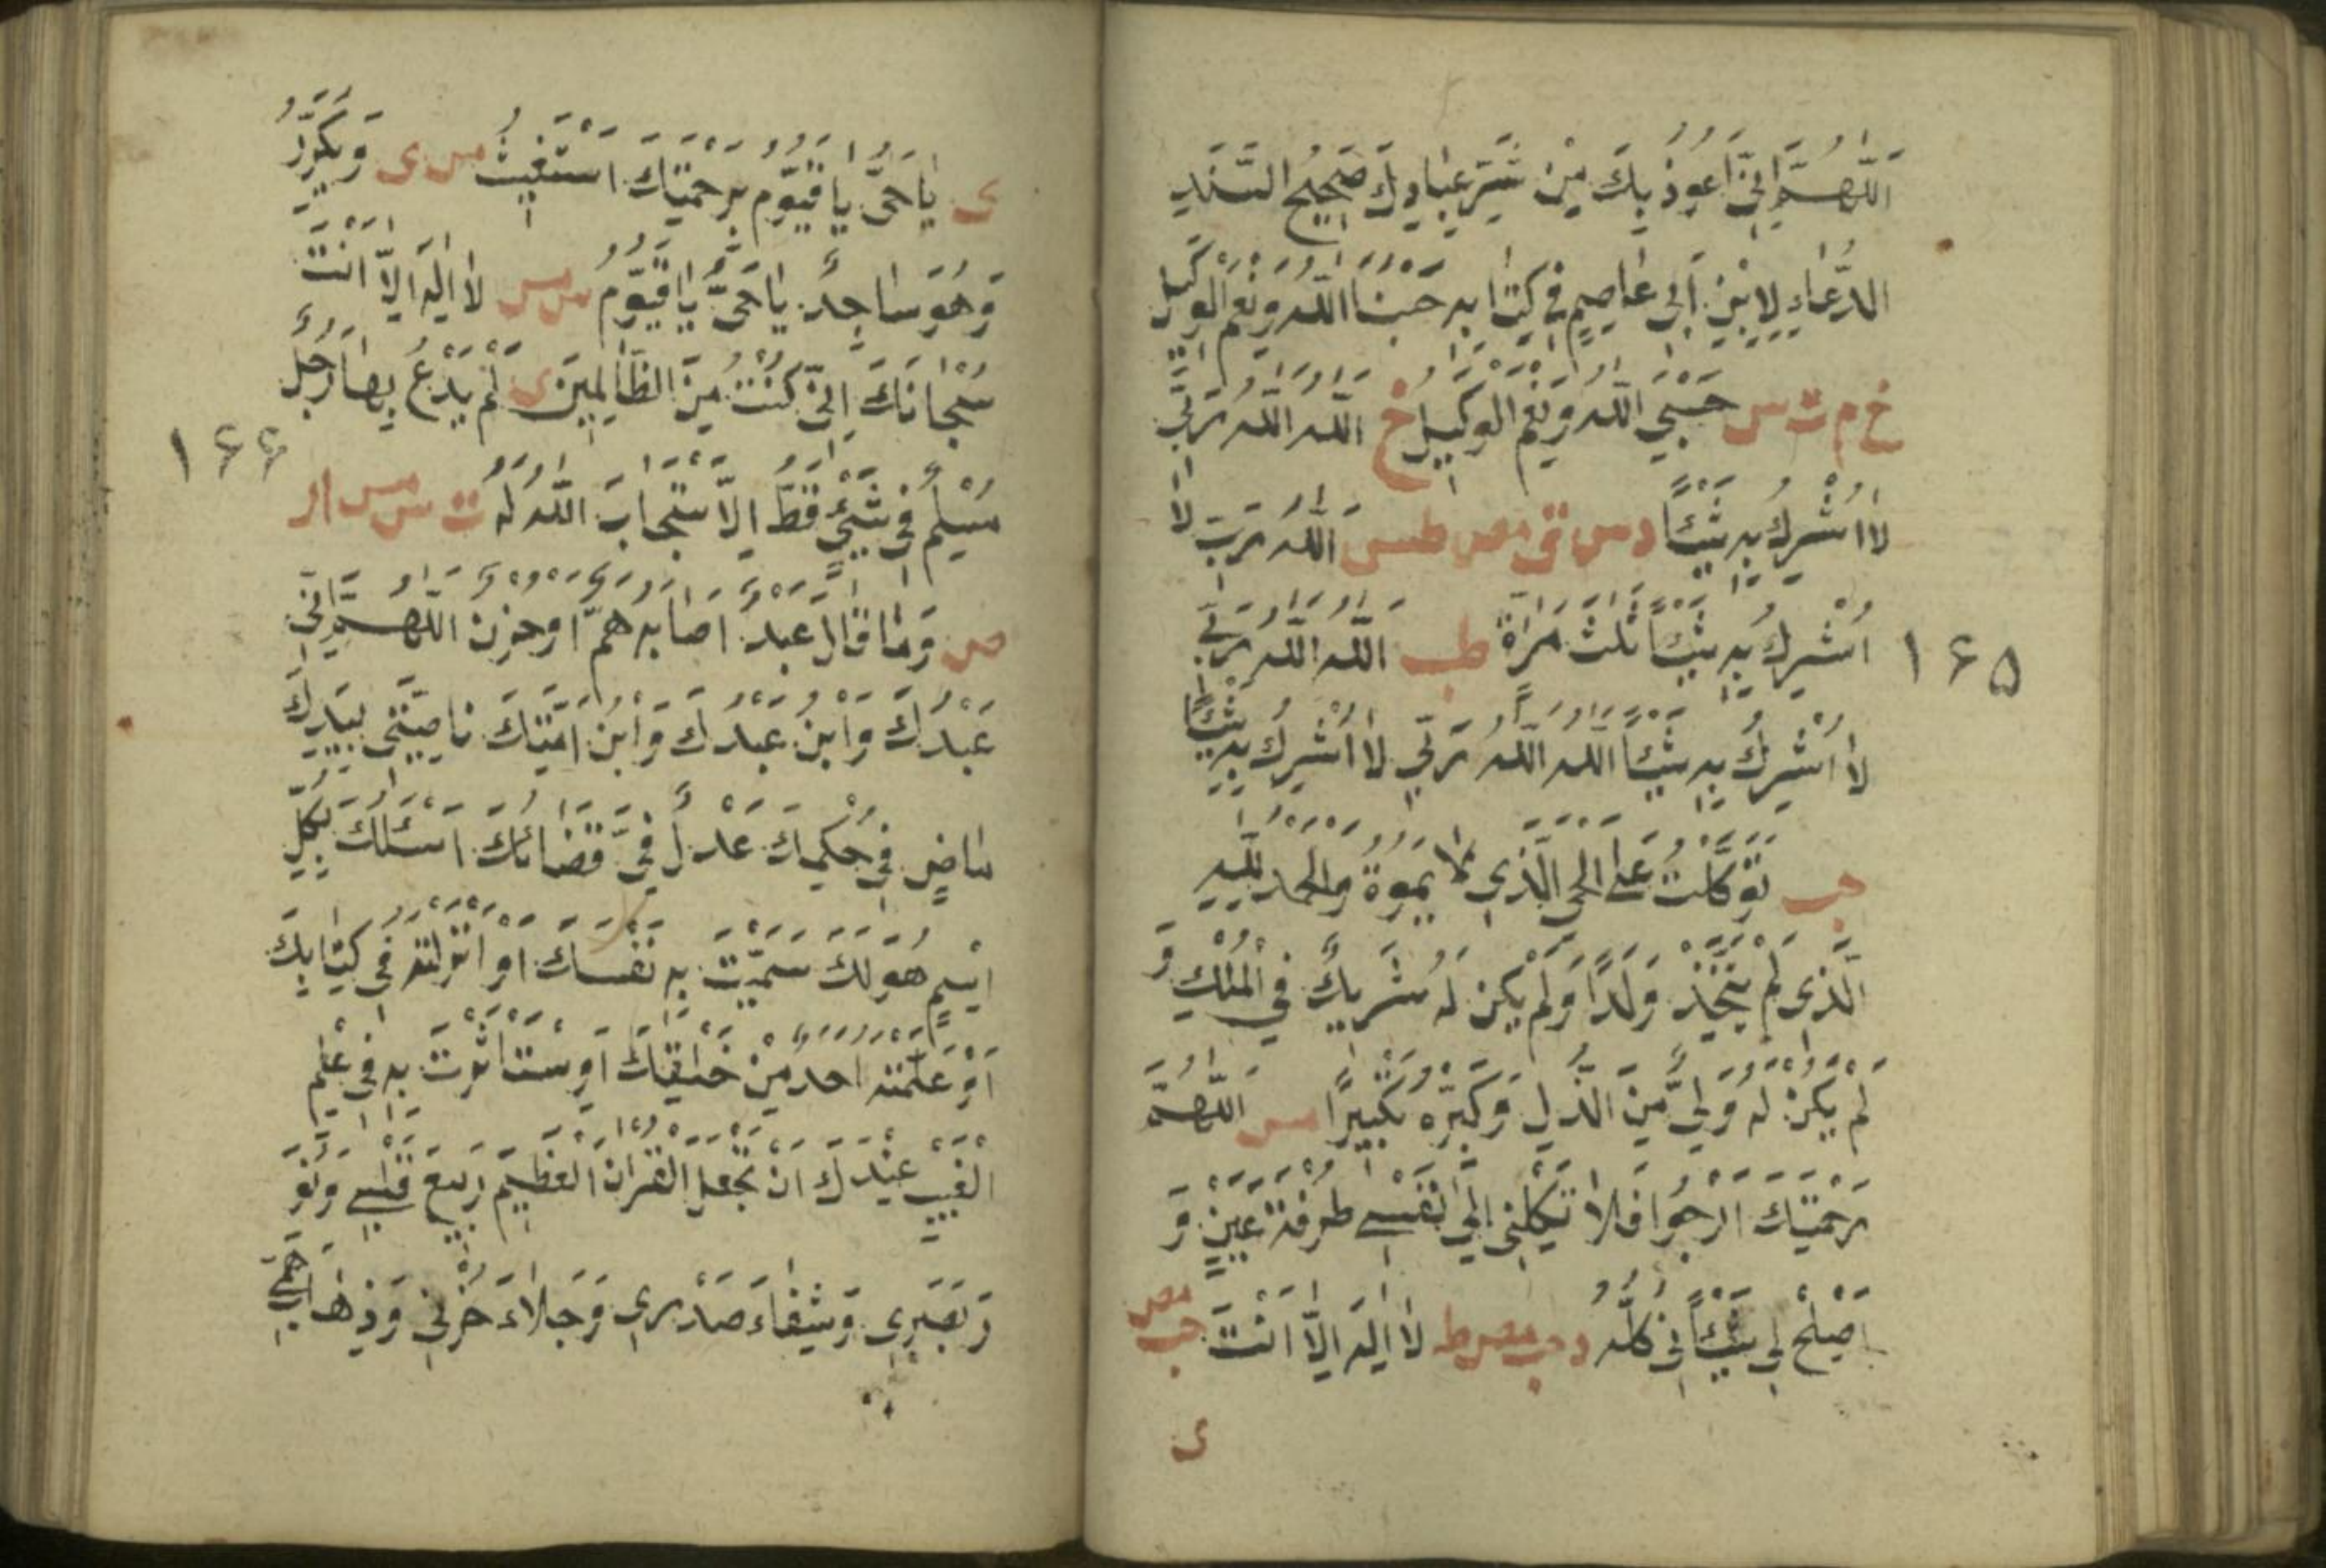 اَللّٰهُمَّ اِنّٖى اَعُوذُ بِكَ مِنْ شَرِّ عِبَادِكَ صَحِيحُ السَّنَدِ
الدُّعَاءِ لِابْنِ اَبِى عَاصِمٍ فِى كِتَابِهِ حَسْبُنَا اللّٰهُ وَنِعْمَ الْوَكِيلُ
خ م ت س حَسْبِىَ اللّٰهُ وَنِعْمَ الْوَكِيلُ خ اَللّٰهُ اَللّٰهُ رَبِّى
لَا اُشْرِكُ بِهِ شَيْئًا د س ق مص طس اَللّٰهُ رَبِّى لَا
اُشْرِكُ بِهِ شَيْئًا ثَلٰثَ مَرَّاةٍ طب اَللّٰهُ اَللّٰهُ رَبِّى
١٦٥
لَا اُشْرِكُ بِهِ شَيْئًا اَللّٰهُ اَللّٰهُ رَبِّى لَا اُشْرِكُ بِهِ شَيْئًا
حب تَوَكَّلْتُ عَلَى الْحَىِّ الَّذِى لَا يَمُوةُ وَالْحَمْدُ لِلّٰهِ
الَّذِى لَمْ يَتَّخِذْ وَلَدًا وَلَمْ يَكُنْ لَهُ شَرِيكٌ فِى الْمُلْكِ وَ
لَمْ يَكُنْ لَهُ وَلِىٌّ مِّنَ الذُّلِّ وَكَبِّرْهُ تَكْبِيرًا مس اَللّٰهُمَّ
رَحْمَتَكَ اَرْجُوا فَلَا تَكِلْنِى اِلٰى نَفْسِى طَرْفَةَ عَيْنٍ وَ
اَصْلِحْ لِى شَيْئًا فِى كُلَّهُ د حب مص ط لَا اِلٰهَ اِلَّا اَنْتَ حب مص
ى
ى يَا حَىُّ يَا قَيُّومُ بِرَحْمَتِكَ اَسْتَغِيثُ مس ى وَيُكَرِّرُ
وَهُوَ سَاجِدٌ يَا حَىُّ يَا قَيُّومُ س مس لَا اِلٰهَ اِلَّا اَنْتَ
سُبْحَانَكَ اِنِّى كُنْتُ مِنَ الظَّالِمِينَ ى لَمْ يَدْعُ بِهَا رَجُلٌ
١٦٦
مُسْلِمٌ فِى شَيْئٍ قَطُّ اِلَّا اسْتَجَابَ اللّٰهُ لَهُ ت س مس ا ر
ص وَمَا قَالَ عَبْدٌ اَصَابَهُ هَمٌّ اَوْ حُزْنٌ اَللّٰهُمَّ اِنِّى
عَبْدُكَ وَابْنُ عَبْدِكَ وَابْنُ اَمَتِكَ نَاصِيَتِى بِيَدِكَ
مَاضٍ فِىَّ حُكْمِكَ عَدْلٌ فِىَّ قَضَائُكَ اَسْئَلُكَ بِكُلِّ
اسْمٍ هُوَ لَكَ سَمَّيْتَ بِهِ نَفْسَكَ اَوْ اَنْزَلْتَهُ فِى كِتَابِكَ
اَوْ عَلَّمْتَهُ اَحَدًا مِنْ خَلْقِكَ اَوِ سْتَاْثَرْتَ بِهِ فِى عِلْمِ
الْغَيْبِ عِنْدَكَ اَنْ تَجْعَلَ الْقُرْاٰنَ الْعَظِيمَ رَبِيعَ قَلْبِى وَنُورَ
وَبَصَرِى وَشِفَاءَ صَدْرِى وَجَلَاءَ حُزْنِى وَذِهَابَ هَمِّى